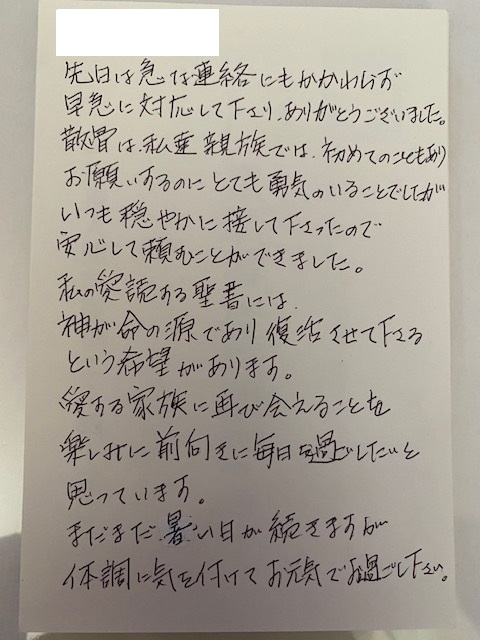 先日は急な連絡にもかかわらず
早急に対応して下さり、ありがとうございました。
散骨は、私達親族では、初めてのこともあり
お願いするのにとても勇気のいることでしたが
いつも穏やかに接して下さったので
安心して頼むことができました。
私の愛読する聖書には、
神が命の源であり復活させて下さる
という希望があります。
愛する家族に再び会えることを
楽しみに前向きに毎日を過ごしたいと
思っています。
まだまだ暑い日が続きますが
体調に気を付けてお元気でお過ごし下さい。